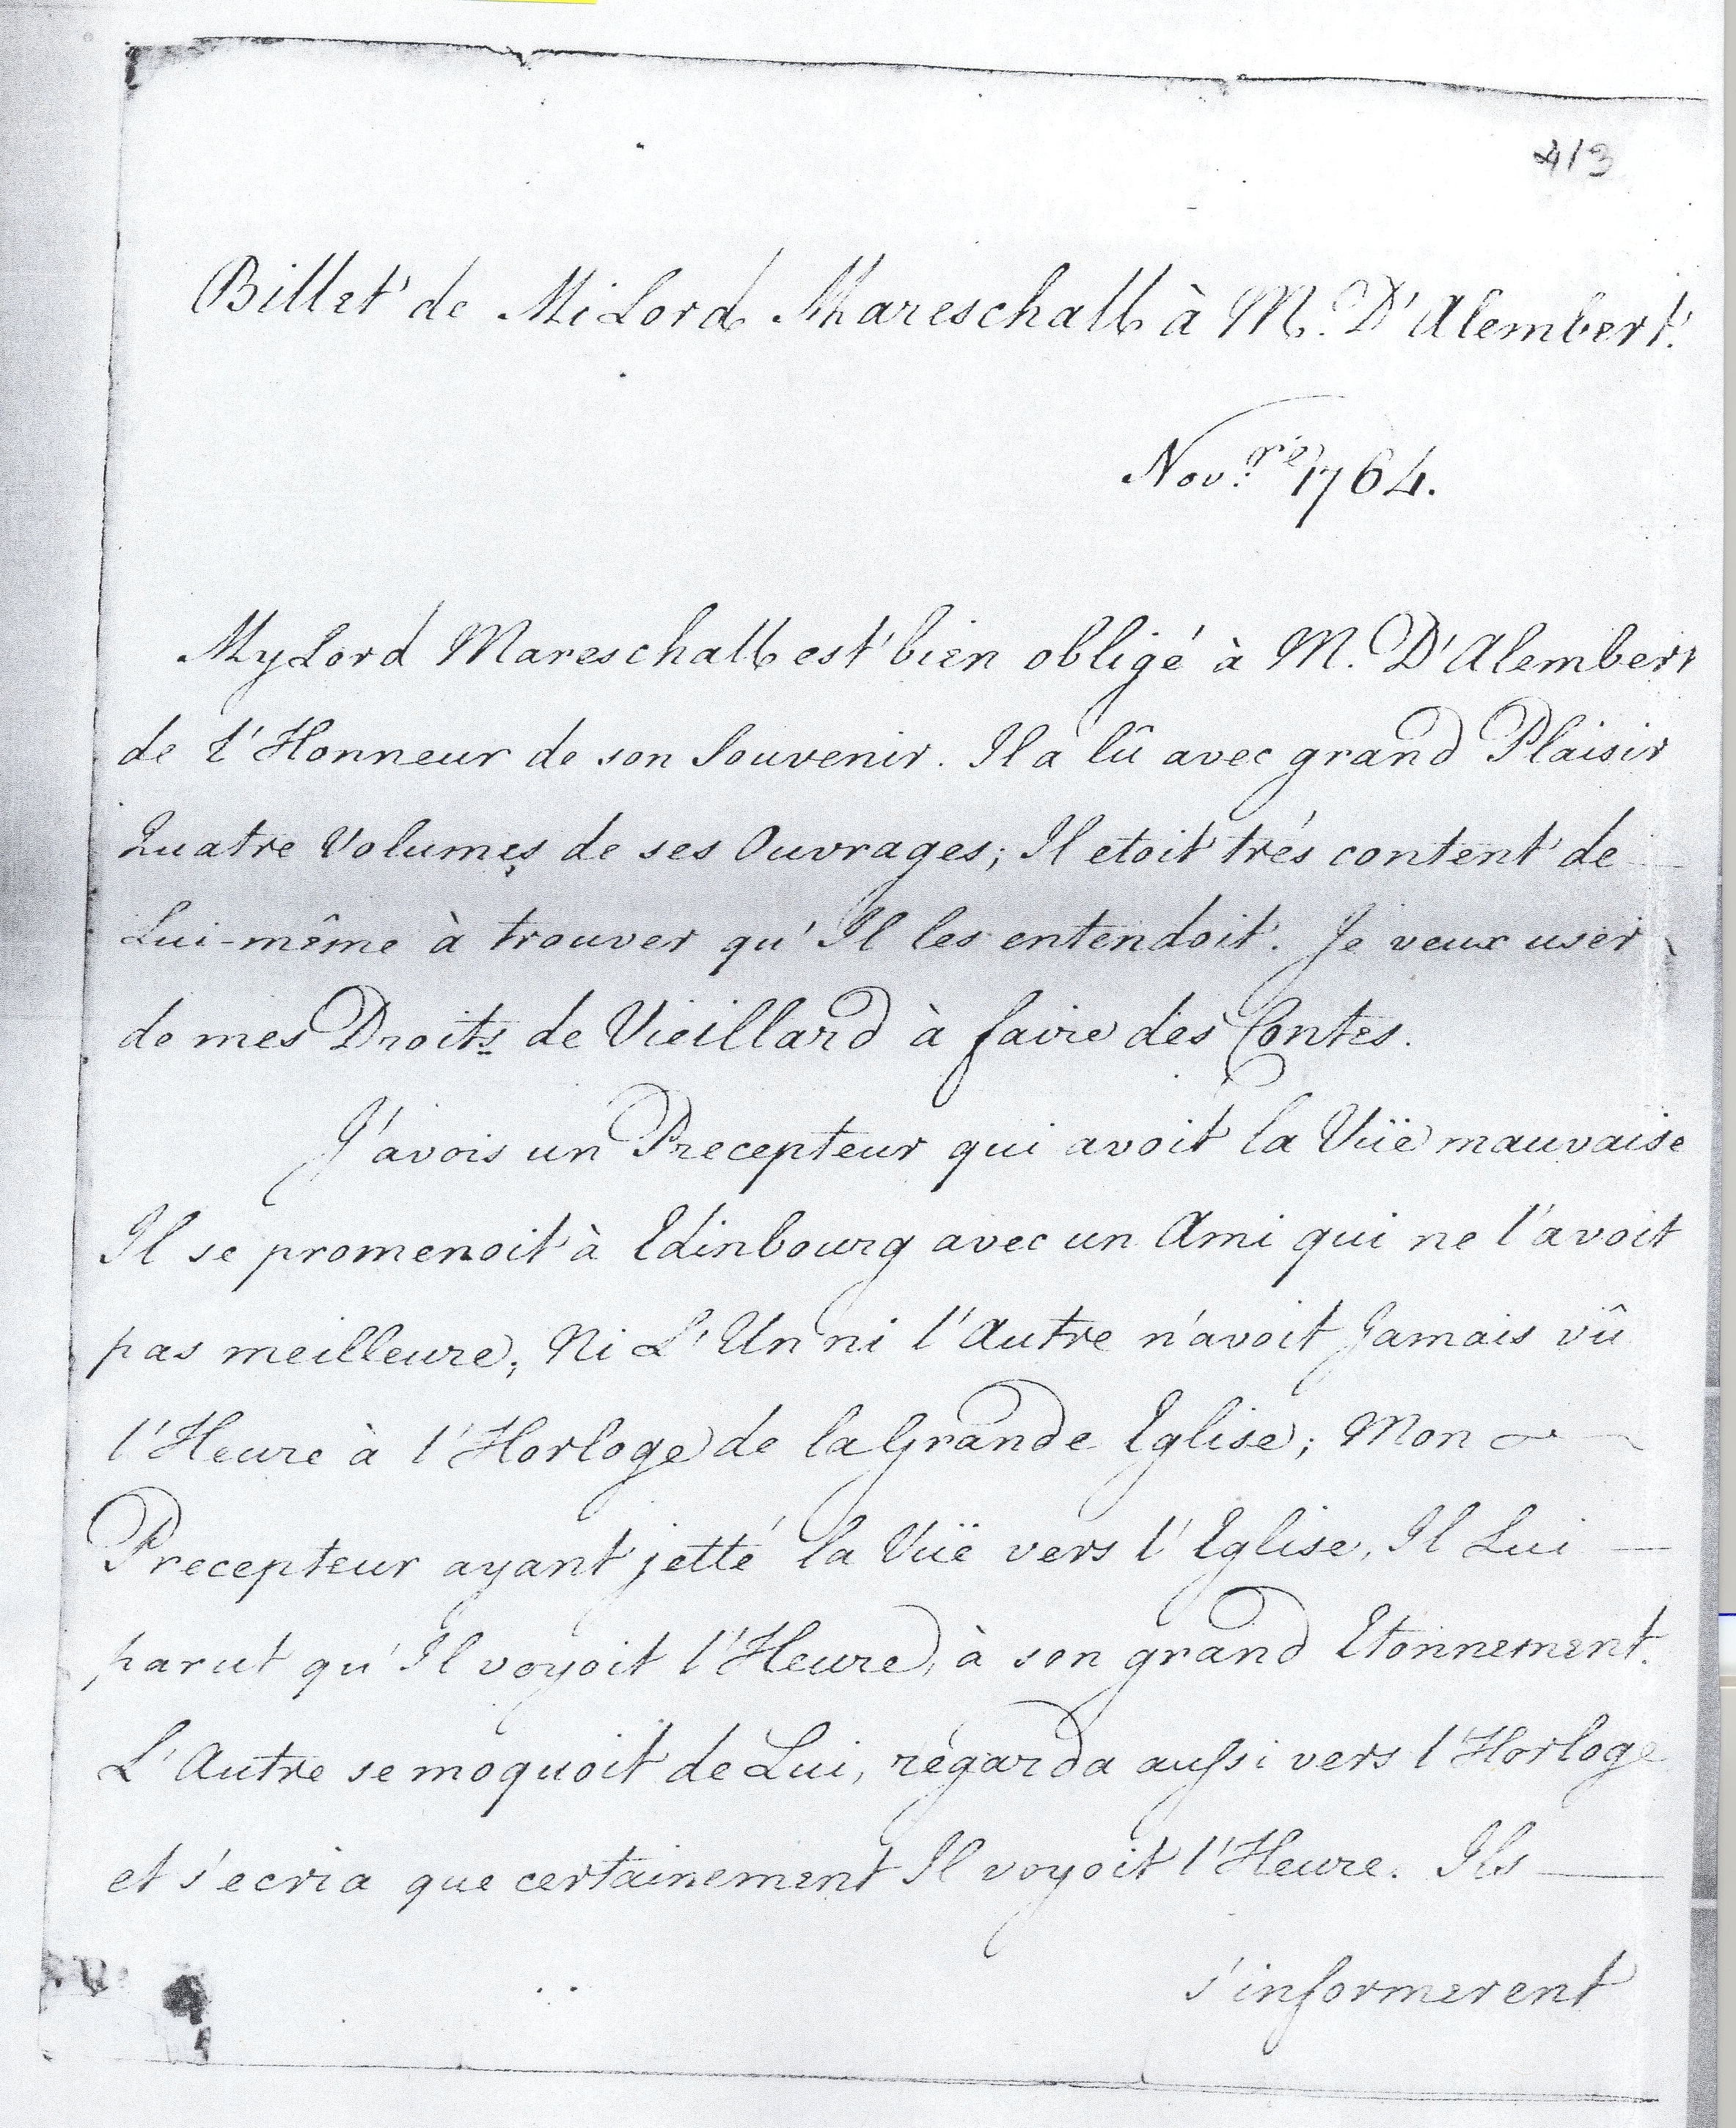 413
Billet de MiLord Mareschall à M. D'Alembert.
Nov.re 1764.
MyLord Mareschall est bien obligé à M. D'Alembert
de l'Honneur de son Souvenir. Il a lû avec grand Plaisir
Quatre Volumes de ses Ouvrages; Il etoit trés content de
Lui-même à trouver qu'Il les entendoit. Je veux user
de mes Droits de Vieillard à faire des Contes.
J'avois un Precepteur qui avoit la Vüe mauvaise
Il se promenoit à Edinbourg avec un Ami qui ne l'avoit
pas meilleure, Ni L'Un ni l'Autre n'avoit Jamais vû
l'Heure à l'Horloge de la Grande Eglise; Mon
Precepteur ayant jetté la Vüe vers l'Eglise, Il Lui
parut qu'Il voyoit l'Heure, à son grand Etonnement.
L'Autre se moquoit de Lui, régarda aussi vers l'Horloge
et s'ecria que certainement Il voyoit l'Heure. Ils
s'informerent